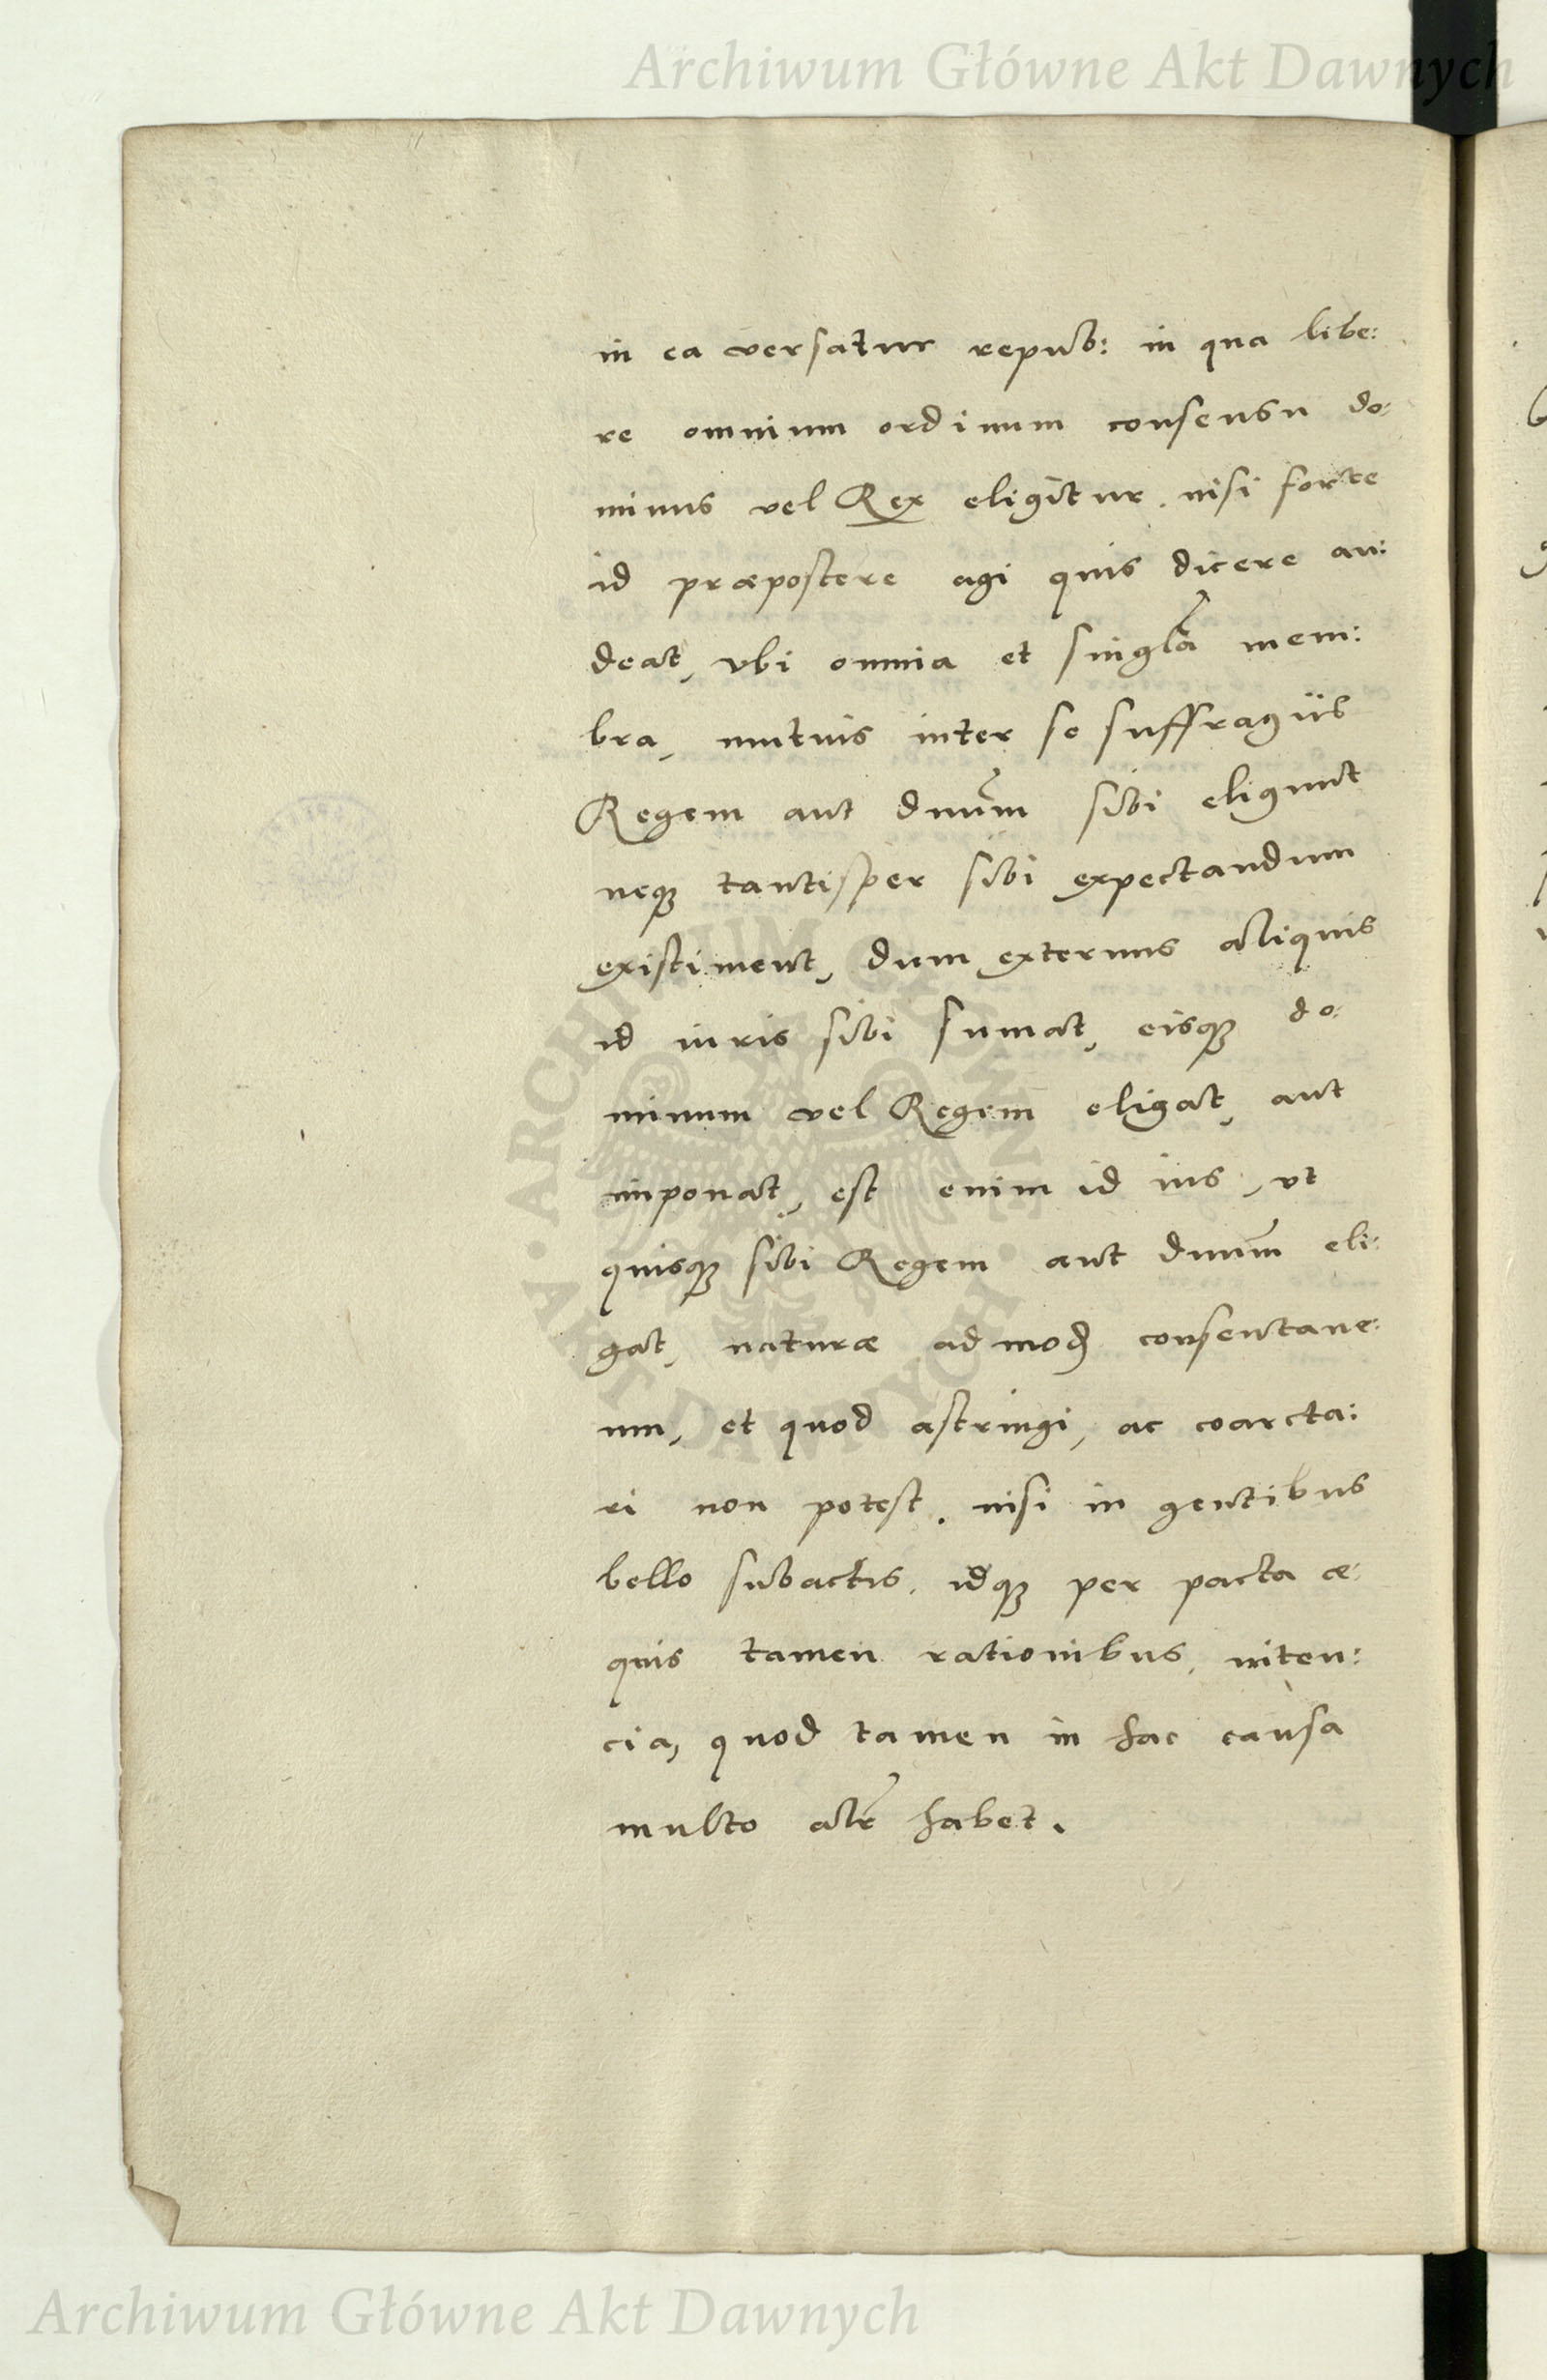 Archiwum Główne Akt Dawnych
in ea versatur repub: in qua libe:
re omnium ordinum consensu do:
minus vel Rex eligitur. nisi forte
id præpostere agi quis dicere au:
deat, vbi omnia et singla mem:
bra, mutuis inter se suffragiis
Regem aut dnum sibi eligunt
neq; tantisper sibi expectandum
existiment, dum externus aliquis
id iuris sibi sumat, eisq; do:
minum vel Regem eligat, aut
imponat, est enim id ius, vt
quisq; sibi Regem aut dnum eli:
gat, naturæ admod consentane:
um, et quod astringi, ac coarcta:
ri non potest. nisi in gentibus
bello subactis. idq; per pacta æ:
quis tamen rationibus, niten:
cia, quod tamen in hac causa
multo alr habet.
ARCHIWUM GŁÓWNE
AKT DAWNYCH
Archiwum Główne Akt Dawnych